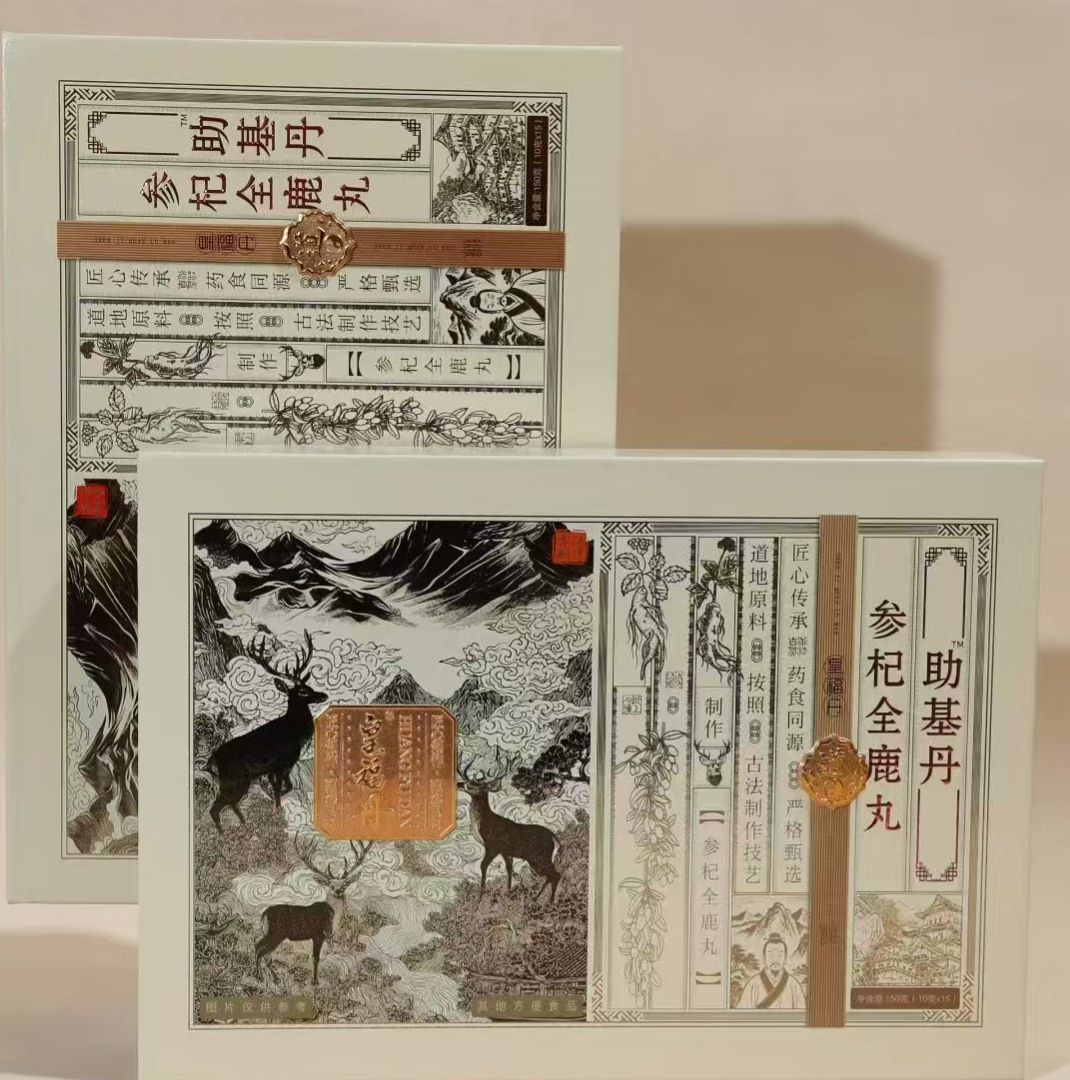 助基丹
TM
参杞全鹿丸
净含量:150克(10克x15)
SHEN JI QUAN LU WAN
皇福丹
道
匠心传承 药食同源 严格甄选
道地原料 按照 古法制作技艺
制作
【参杞全鹿丸】
助基丹
TM
参杞全鹿丸
皇福丹
道
匠心传承 药食同源 严格甄选
道地原料 按照 古法制作技艺
制作
【参杞全鹿丸】
净含量:150克(10克x15)
皇福丹
HUANGFUDAN
图片仅供参考
其他方便食品